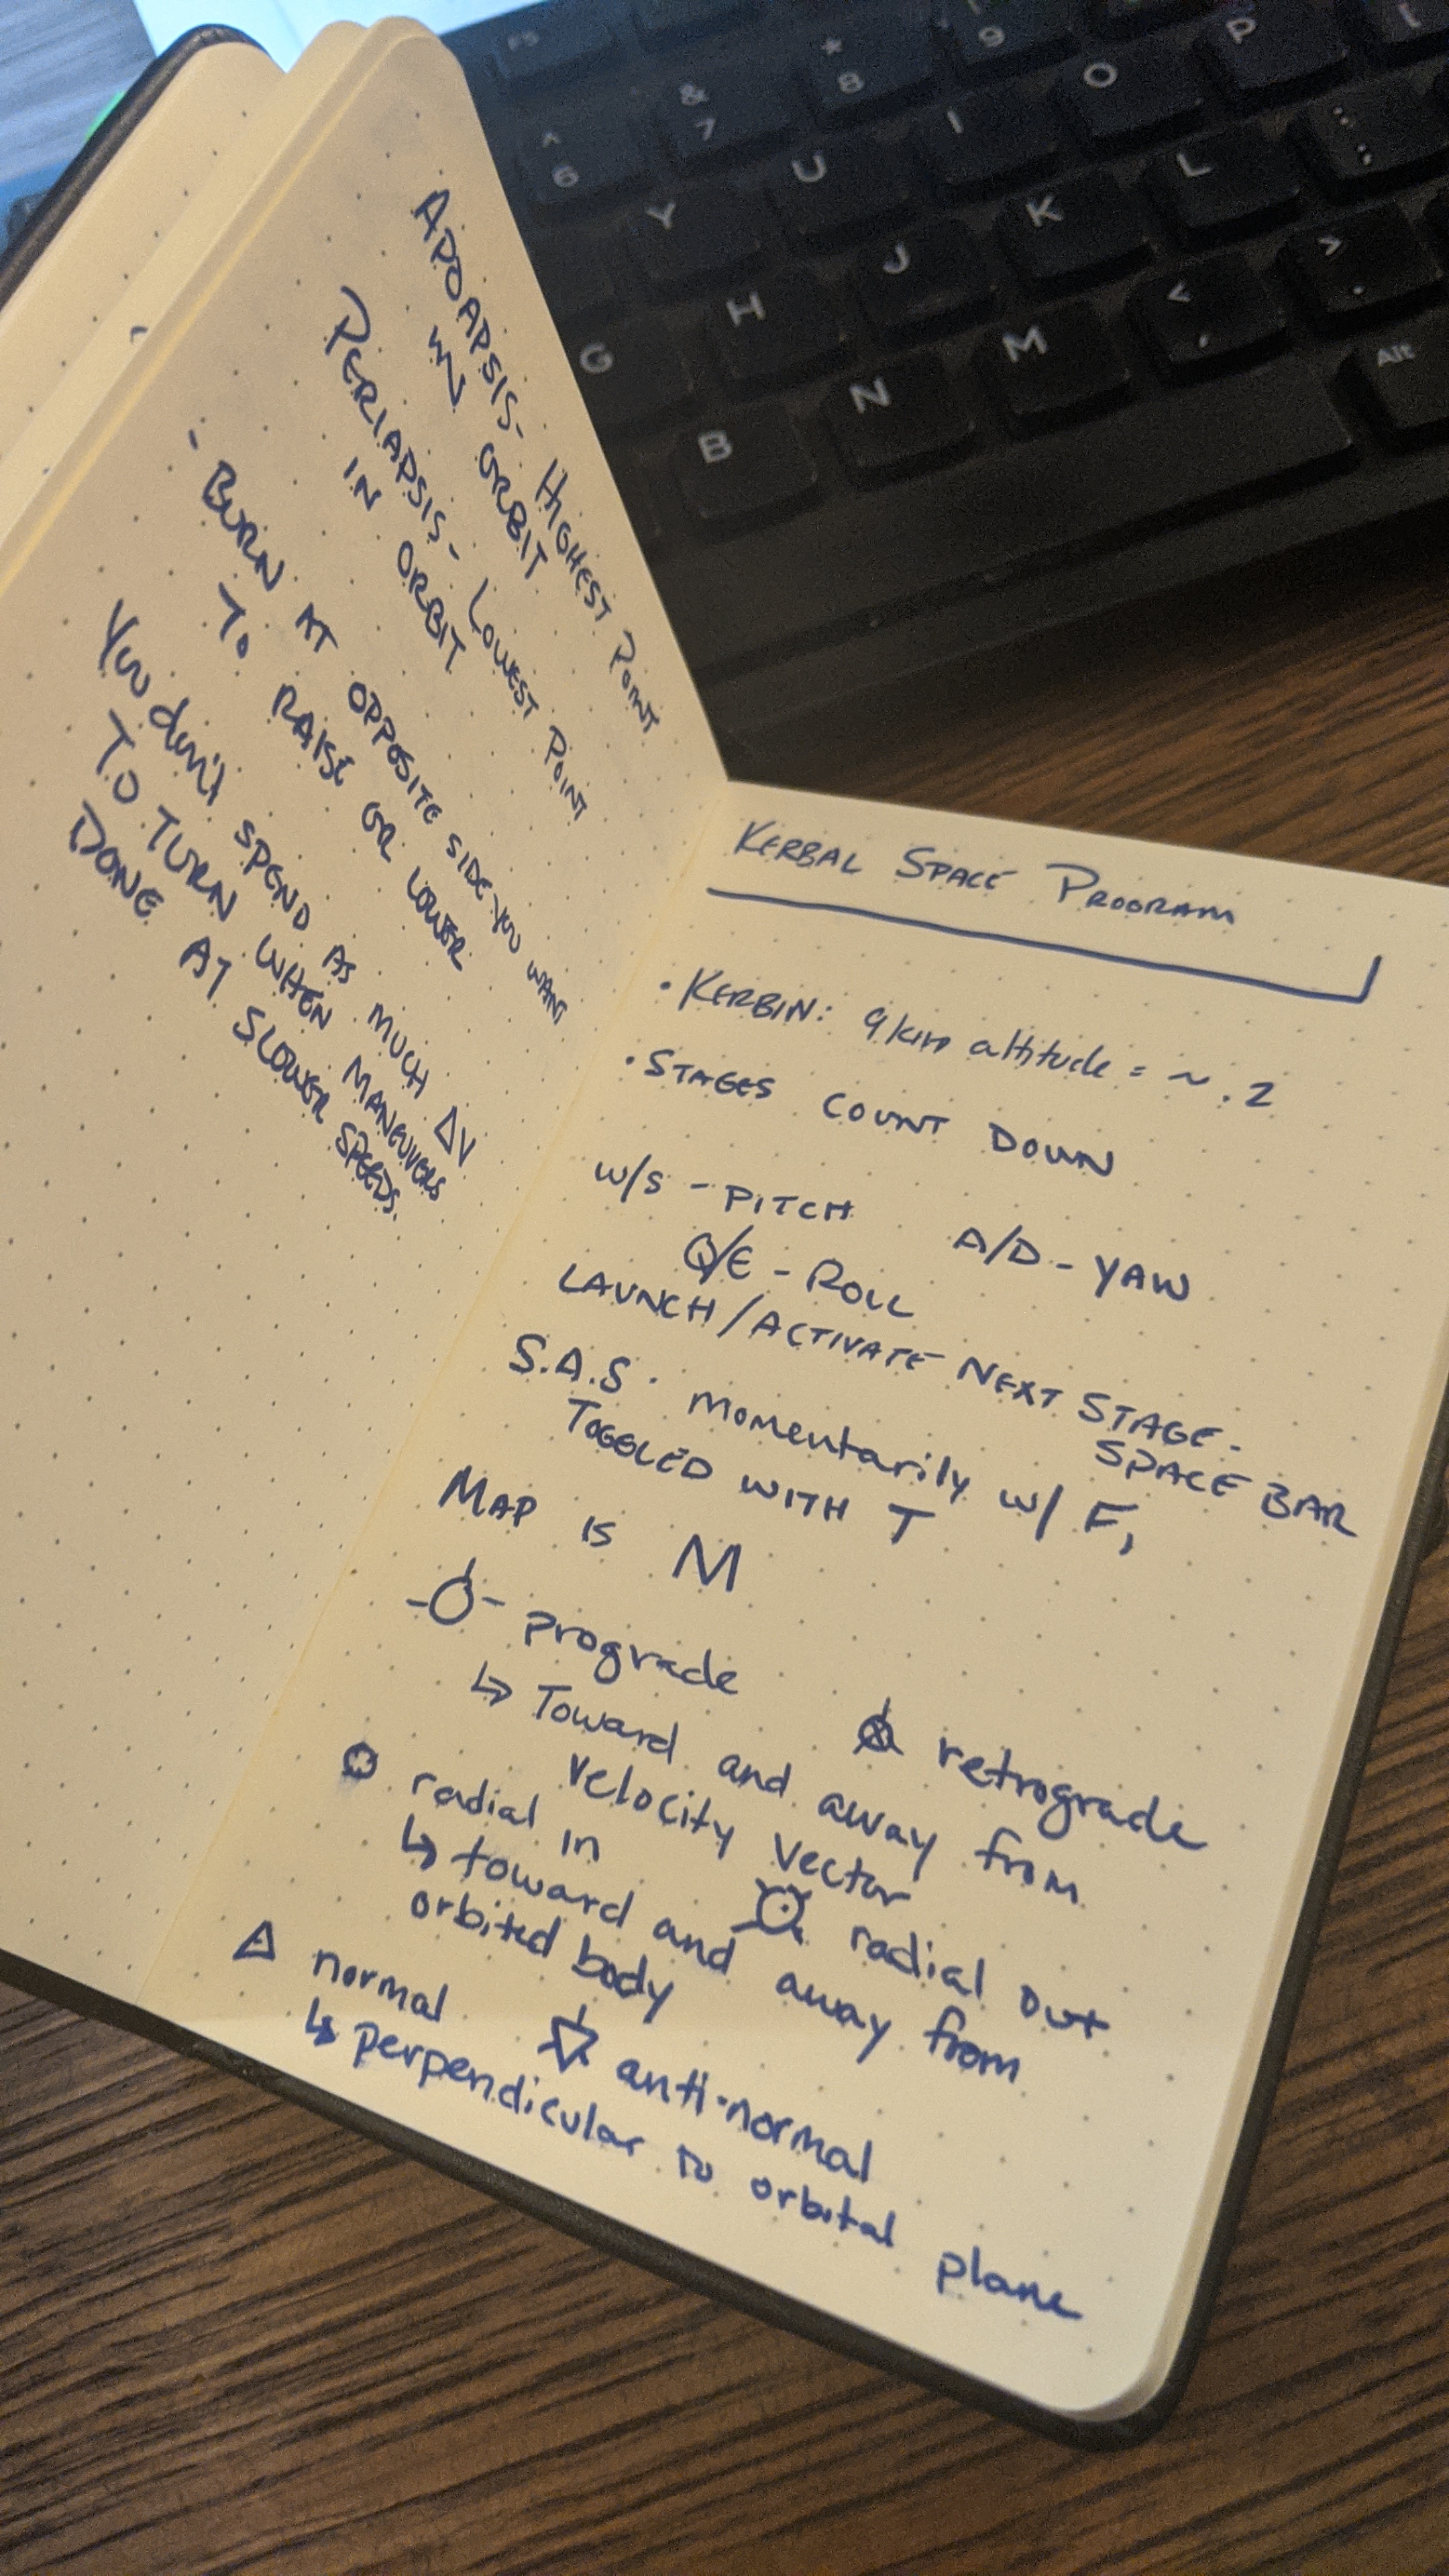 APOAPSIS- HIGHEST POINT
IN ORBIT
PERIAPSIS- LOWEST POINT
IN ORBIT
- BURN AT OPPOSITE SIDE YOU WANT
TO RAISE OR LOWER
You don't SPEND AS MUCH ΔV
TO TURN WHEN MANEUVERS
DONE AT SLOWER SPEEDS.
KERBAL SPACE PROGRAM
• KERBIN: 9km altitude = ~ .2
• STAGES COUNT DOWN
W/S - PITCH A/D - YAW
Q/E - ROLL
LAUNCH/ACTIVATE NEXT STAGE -
SPACE BAR
S.A.S. momentarily w/ F,
TOGGLED WITH T
MAP IS M
prograde retrograde
↳ Toward and away from
velocity vector
radial in radial out
↳ toward and away from
orbited body
normal anti-normal
↳ perpendicular to orbital plane
F5
^ 6 & 7 * 8 9
Y U I O P [
G H J K L : ;
B N M < , > .
Alt